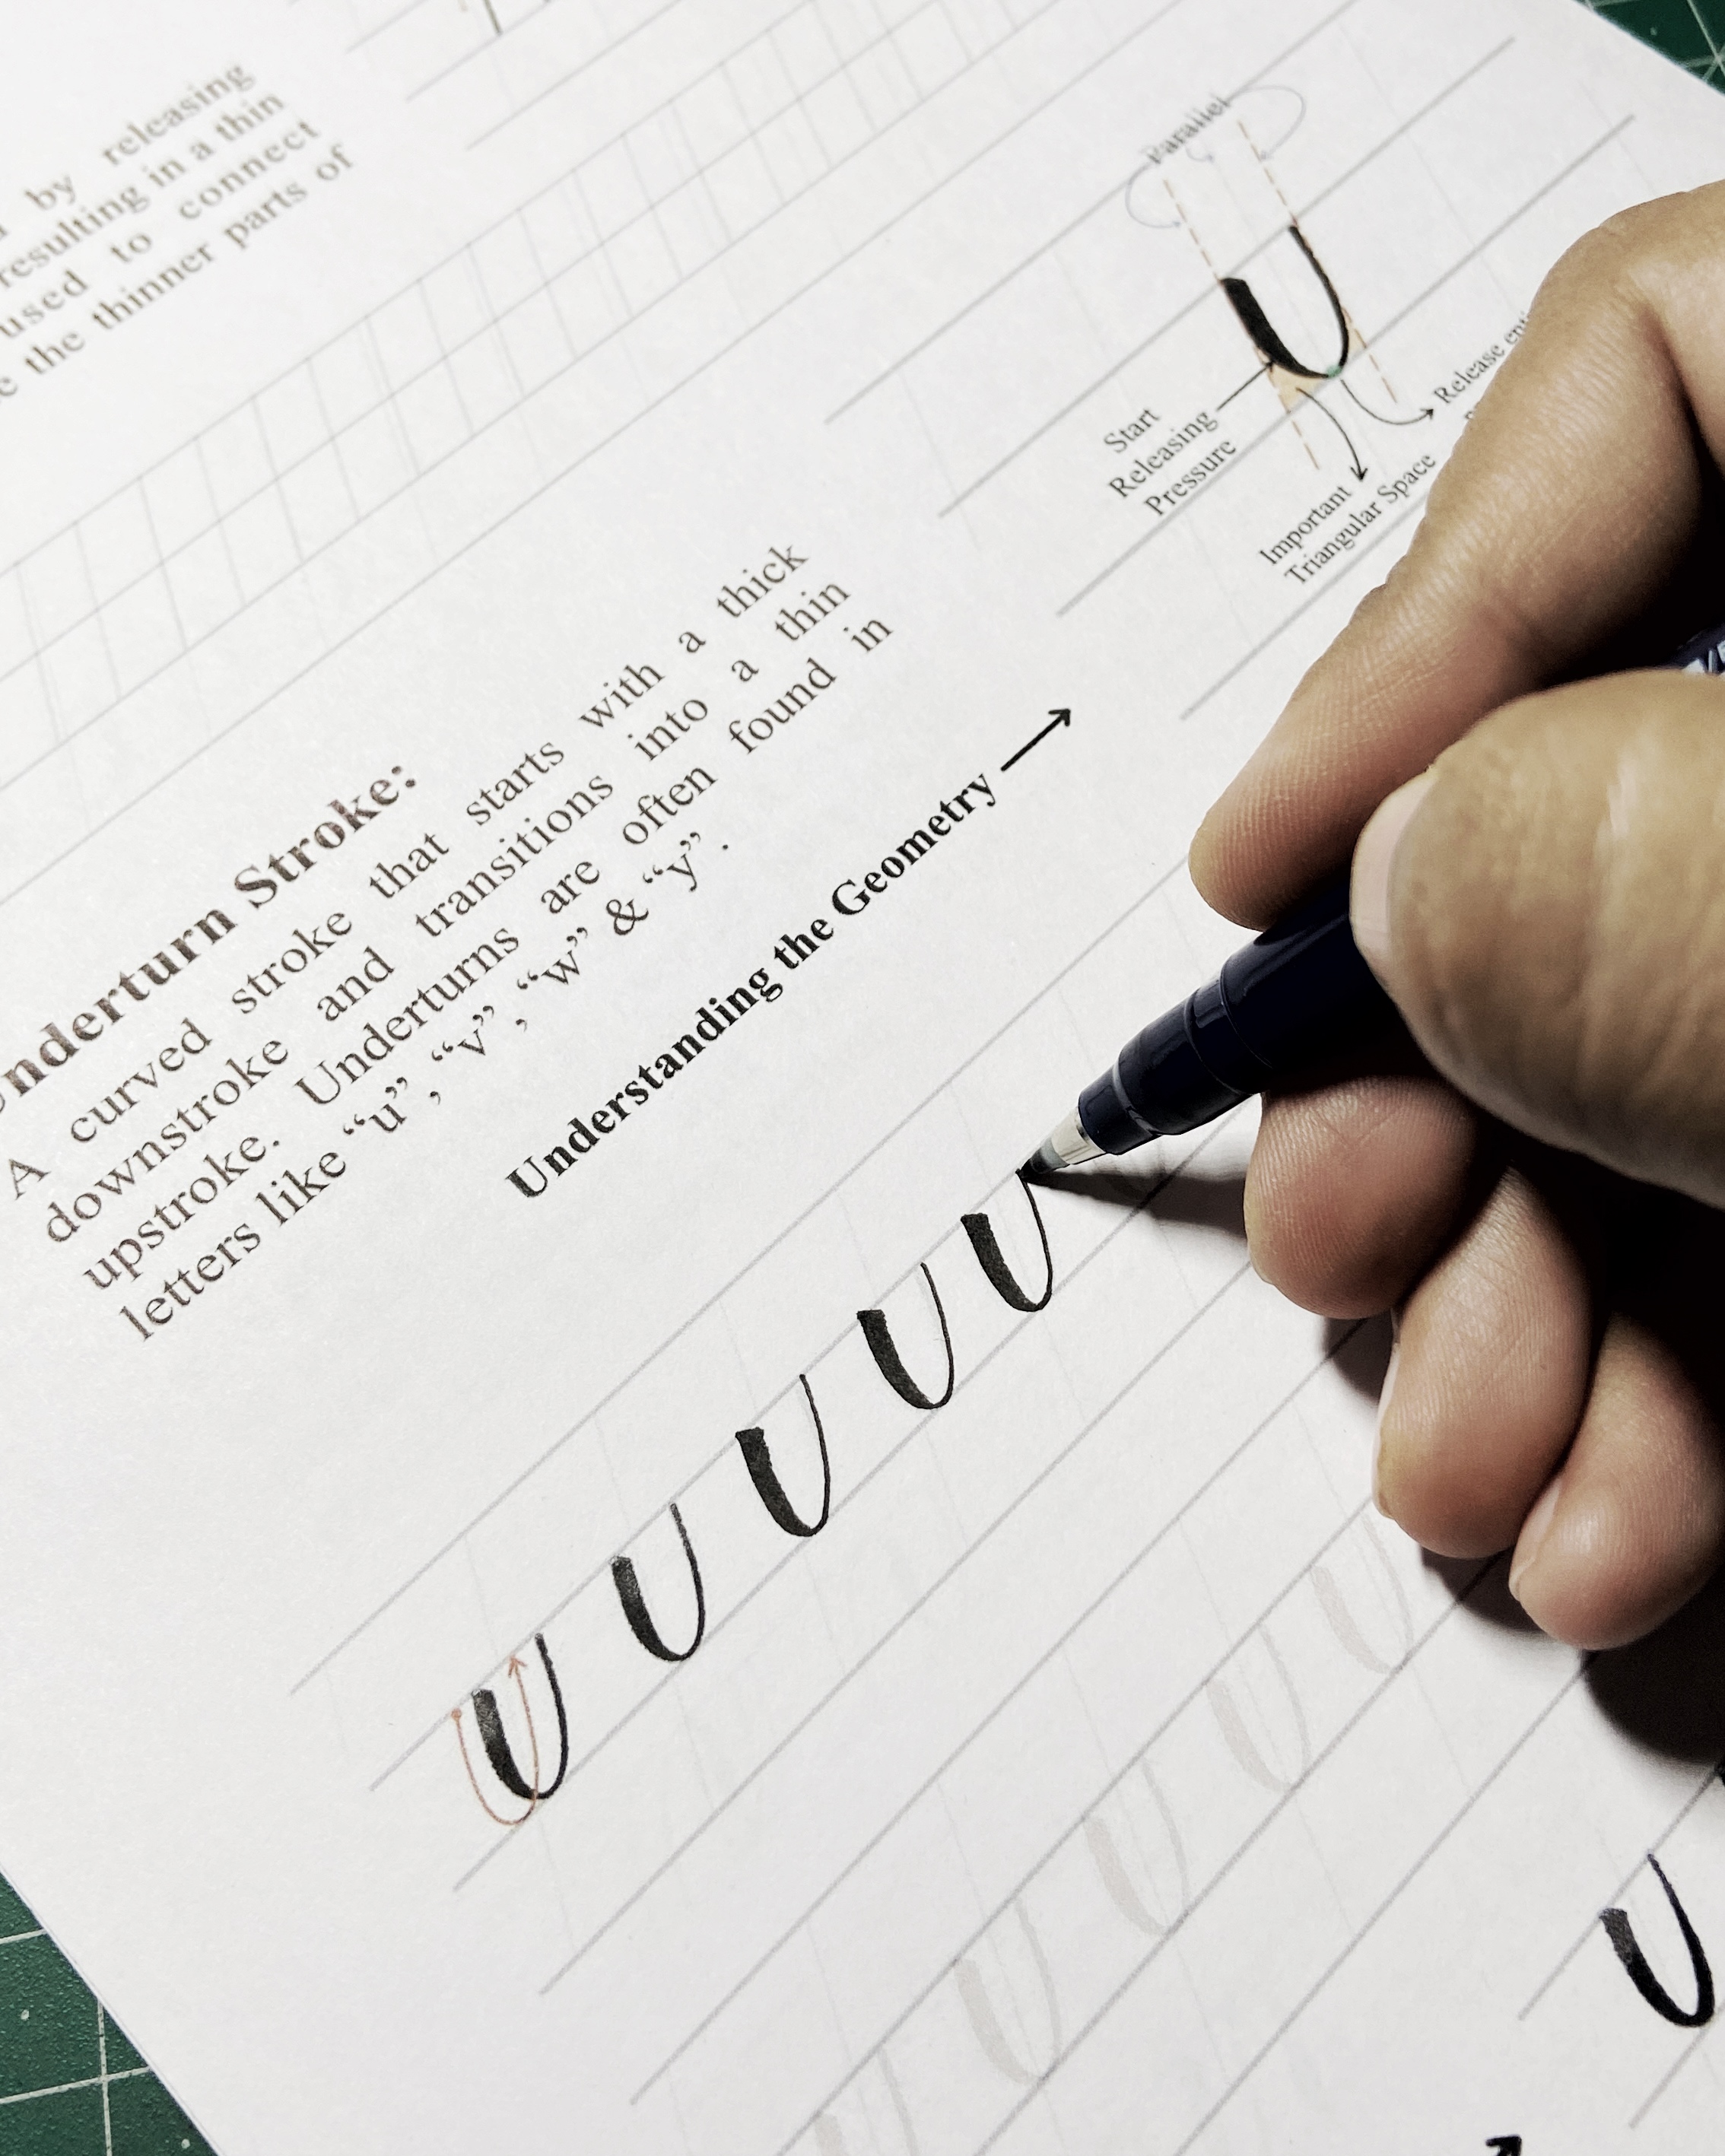 by releasing
resulting in a thin
used to connect
the thinner parts of
Underturn Stroke:
A curved stroke that starts with a thick
downstroke and transitions into a thin
upstroke. Underturns are often found in
letters like “u”, “v”, “w” & “y”.
Understanding the Geometry →
Parallel
Start
Releasing
Pressure
Important
Triangular Space
Release